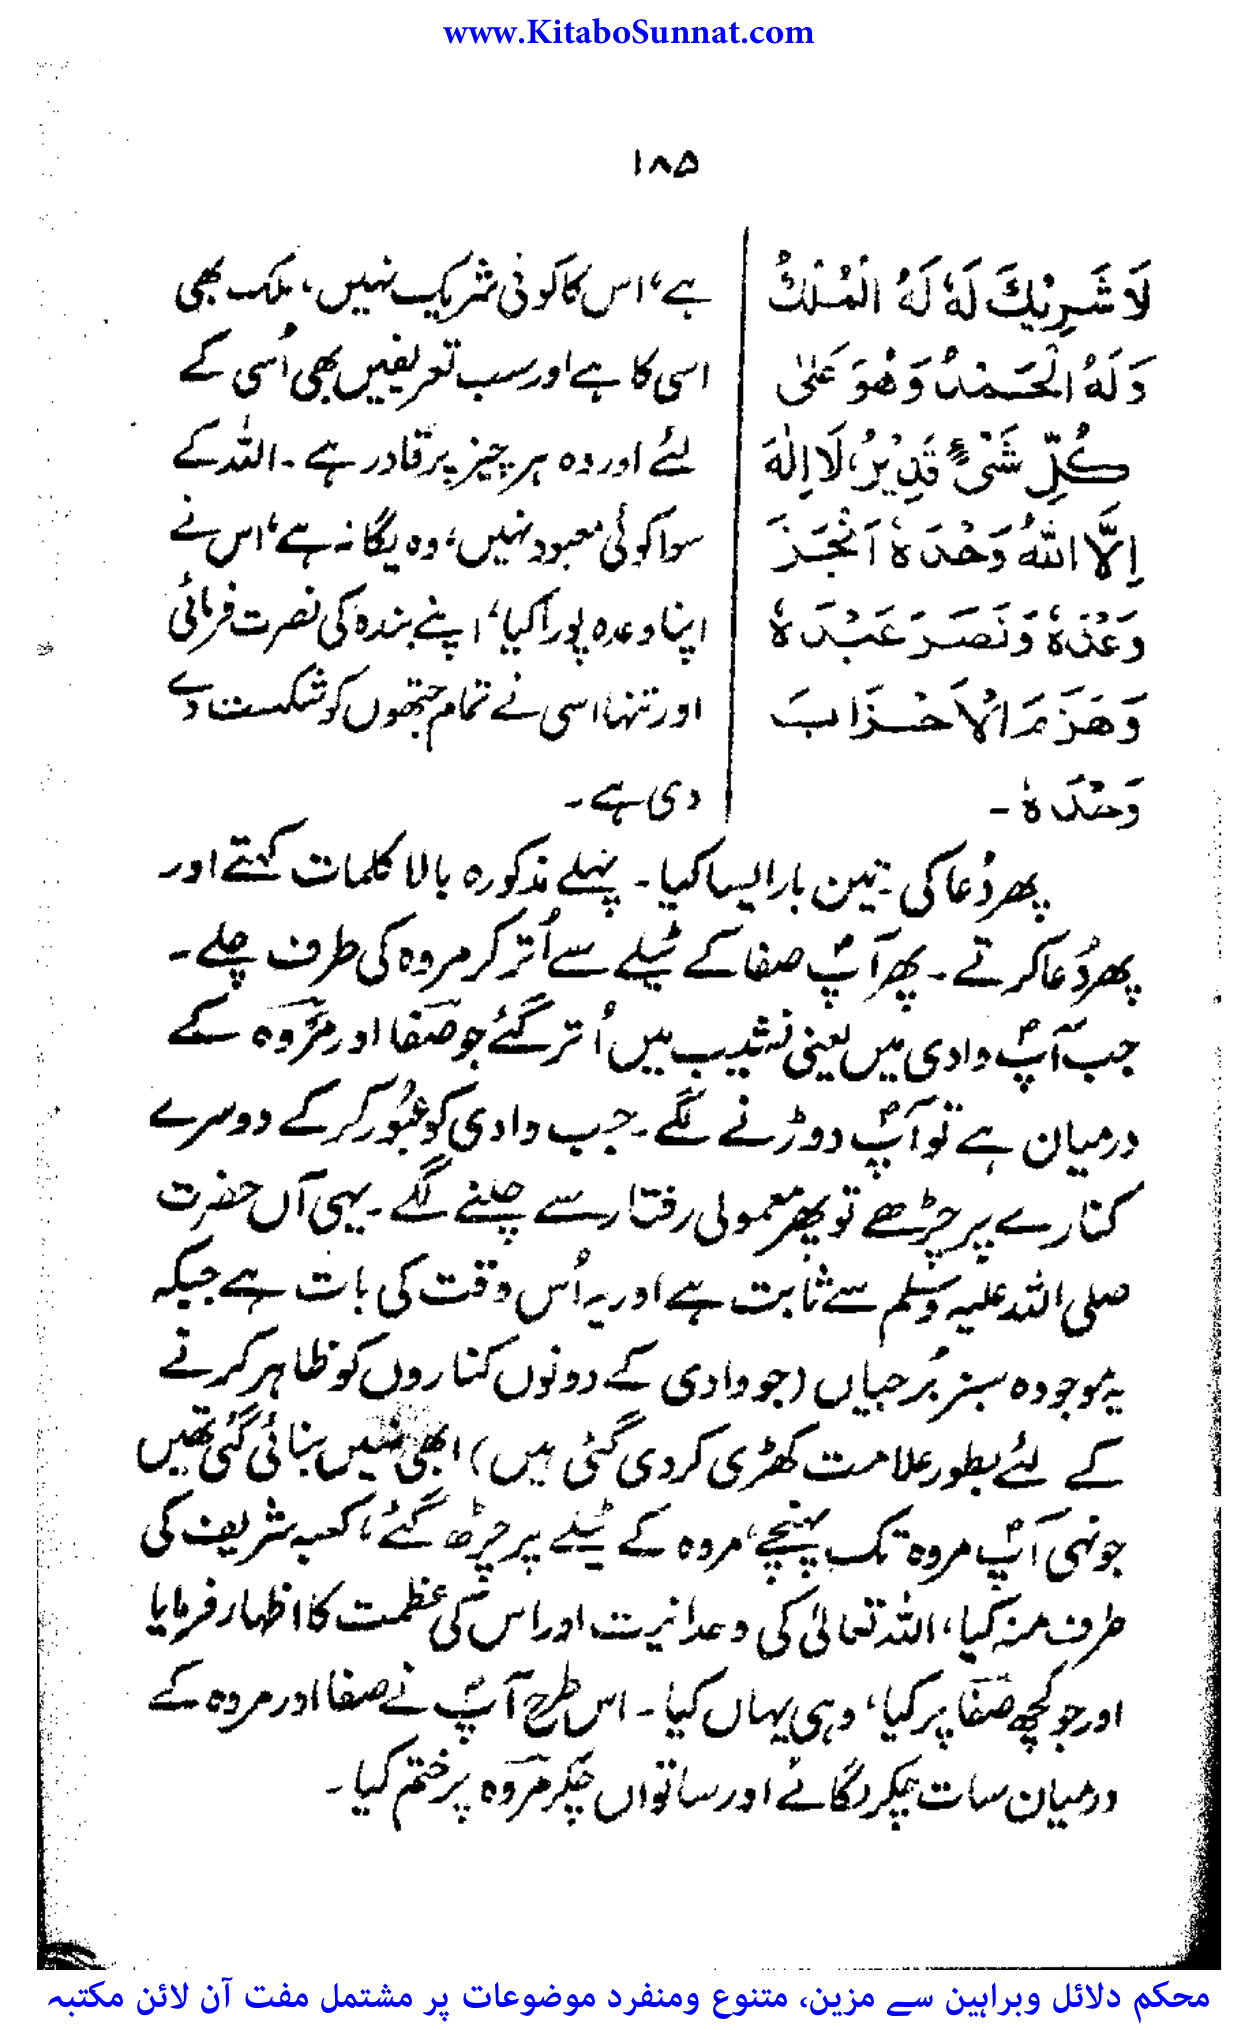 www.KitaboSunnat.com
۱۸۵
لَا شَرِيْكَ لَهٗ لَهُ الْمُلْكُ
وَلَهُ الْحَمْدُ وَهُوَ عَلٰى
كُلِّ شَىْءٍ قَدِيْرٌ، لَا اِلٰهَ
اِلَّا اللّٰهُ وَحْدَهٗ اَنْجَزَ
وَعْدَهٗ وَنَصَرَ عَبْدَهٗ
وَهَزَمَ الْاَحْزَابَ
وَحْدَهٗ ۔
ہے، اس کا کوئی شریک نہیں، ملک بھی
اسی کا ہے اور سب تعریفیں بھی اُسی کے
لئے اور وہ ہر چیز پر قادر ہے ۔ اللہ کے
سوا کوئی معبود نہیں، وہ یگانہ ہے، اس نے
اپنا وعدہ پورا کیا، اپنے بندہ کی نصرت فرمائی
اور تنہا اسی نے تمام جتھوں کو شکست دے
دی ہے ۔
پھر دُعا کی ۔ تین بار ایسا کیا ۔ پہلے مذکورہ بالا کلمات کہتے اور
پھر دُعا کرتے ۔ پھر آپؐ صفا کے ٹیلے سے اُتر کر مروہ کی طرف چلے ۔
جب آپؐ وادی میں یعنی نشیب میں اُتر گئے جو صفا اور مروہ کے
درمیان ہے تو آپؐ دوڑنے لگے ۔ جب وادی کو عبُور کر کے دوسرے
کنارے پر چڑھے تو پھر معمولی رفتار سے چلنے لگے ۔ یہی آں حضرت
صلی اللہ علیہ وسلم سے ثابت ہے اور یہ اُس وقت کی بات ہے جبکہ
یہ موجودہ سبز بُرجیاں (جو وادی کے دونوں کناروں کو ظاہر کرنے
کے لئے بطور علامت کھڑی کر دی گئی ہیں) ابھی نہیں بنائی گئی تھیں
جونہی آپؐ مروہ تک پہنچے، مروہ کے ٹیلے پر چڑھ گئے، کعبہ شریف کی
طرف منہ کیا، اللہ تعالیٰ کی وحدانیت اور اس کی عظمت کا اظہار فرمایا
اور جو کچھ صفا پر کیا، وہی یہاں کیا ۔ اس طرح آپؐ نے صفا اور مروہ کے
درمیان سات چکر لگائے اور ساتواں چکر مروہ پر ختم کیا ۔
محکم دلائل وبراہین سے مزین، متنوع ومنفرد موضوعات پر مشتمل مفت آن لائن مکتبہ